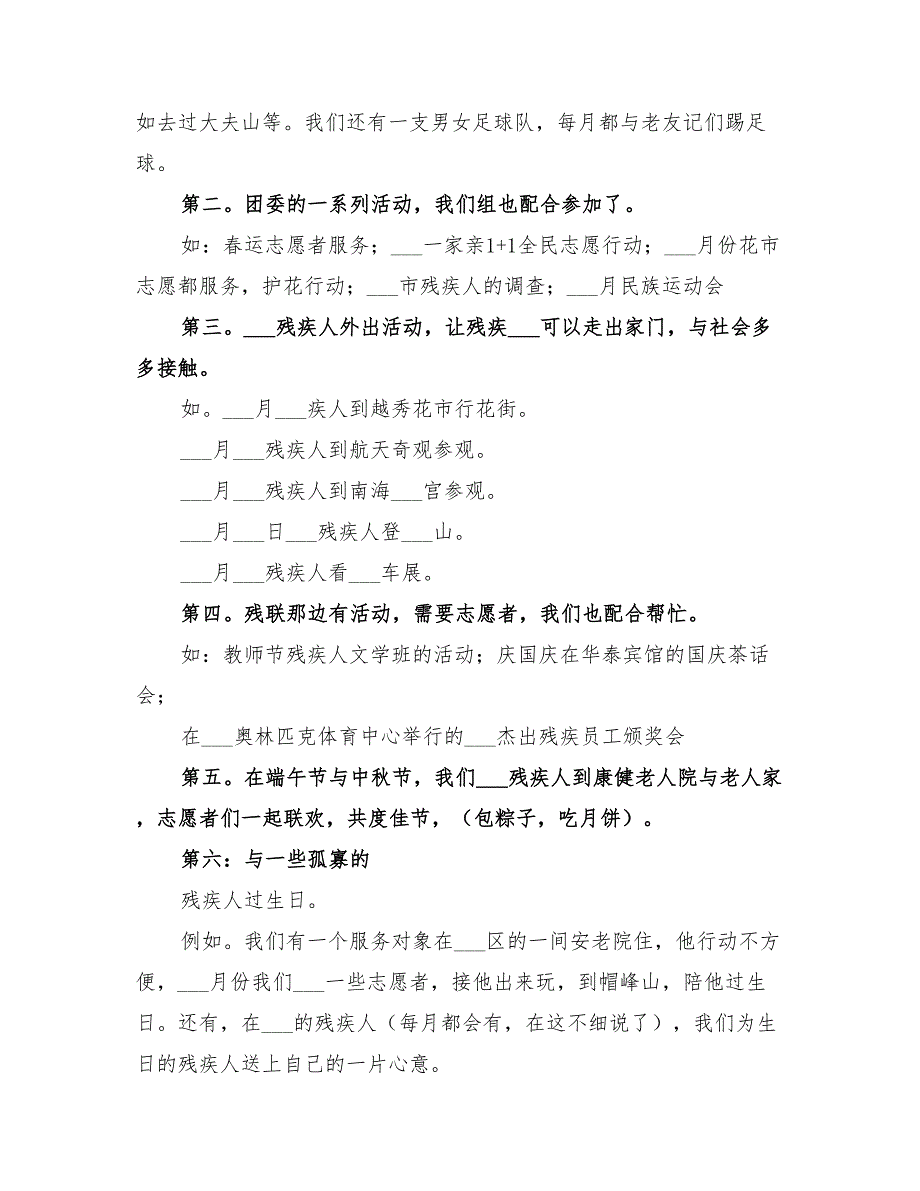 如去过大夫山等。我们还有一支男女足球队，每月都与老友记们踢足
球。
第二。团委的一系列活动，我们组也配合参加了。
如：春运志愿者服务；___一家亲1+1全民志愿行动；___月份花市
志愿都服务，护花行动；___市残疾人的调查；___月民族运动会
第三。___残疾人外出活动，让残疾___可以走出家门，与社会多
多接触。
如。___月___疾人到越秀花市行花街。
___月___残疾人到航天奇观参观。
___月___残疾人到南海___宫参观。
___月___日___残疾人登___山。
___月___残疾人看___车展。
第四。残联那边有活动，需要志愿者，我们也配合帮忙。
如：教师节残疾人文学班的活动；庆国庆在华泰宾馆的国庆茶话
会；
在___奥林匹克体育中心举行的___杰出残疾员工颁奖会
第五。在端午节与中秋节，我们___残疾人到康健老人院与老人家
，志愿者们一起联欢，共度佳节，（包粽子，吃月饼）。
第六：与一些孤寡的
残疾人过生日。
例如。我们有一个服务对象在___区的一间安老院住，他行动不方
便，___月份我们___一些志愿者，接他出来玩，到帽峰山，陪他过生
日。还有，在___的残疾人（每月都会有，在这不细说了），我们为生
日的残疾人送上自己的一片心意。